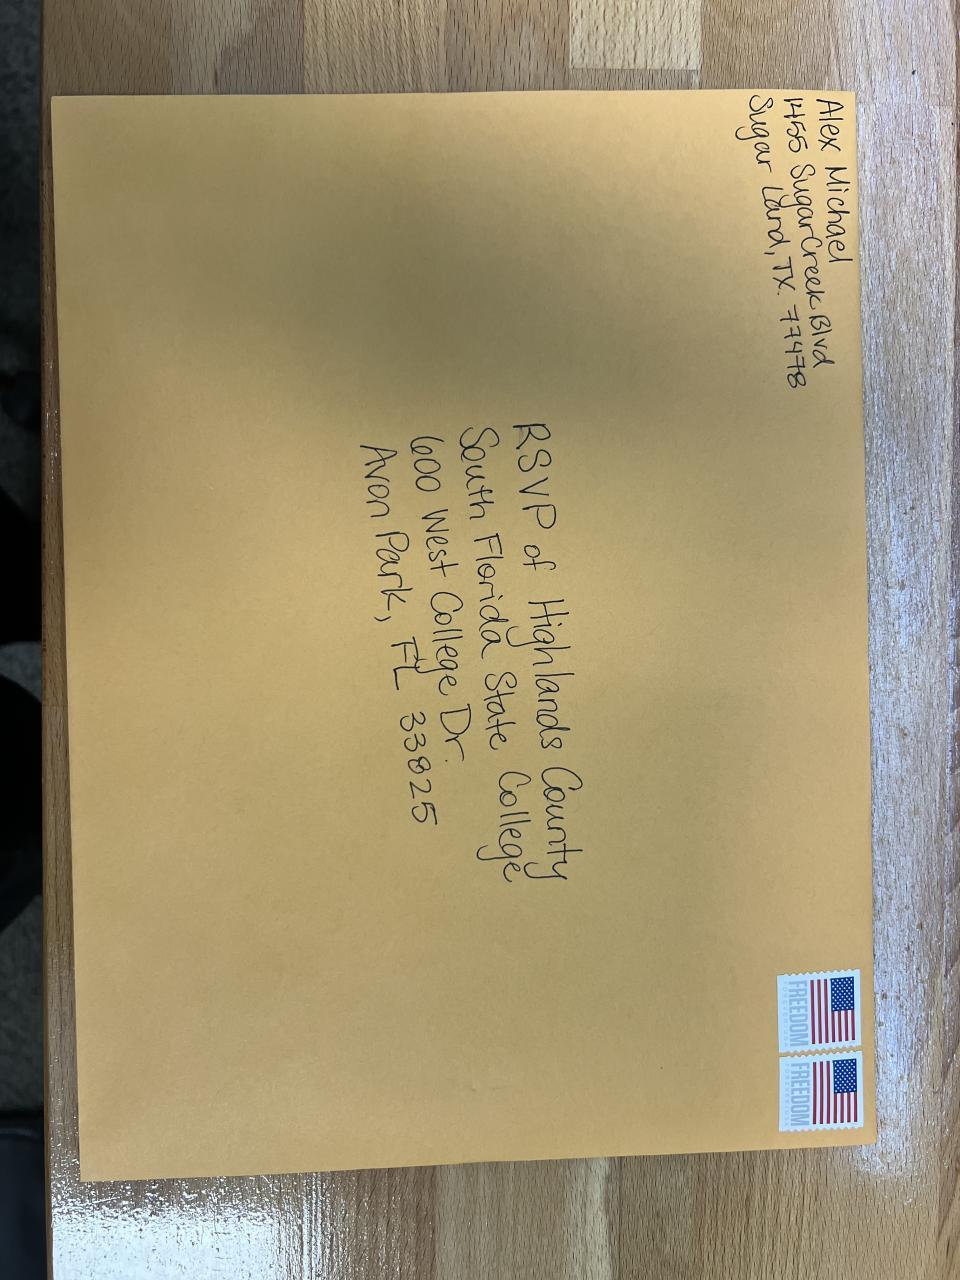 Alex Michael
1455 SugarCreek Blvd
Sugar Land, TX. 77478
RSVP of Highlands County
South Florida State College
600 West College Dr.
Avon Park, FL 33825
FREEDOM
FREEDOM